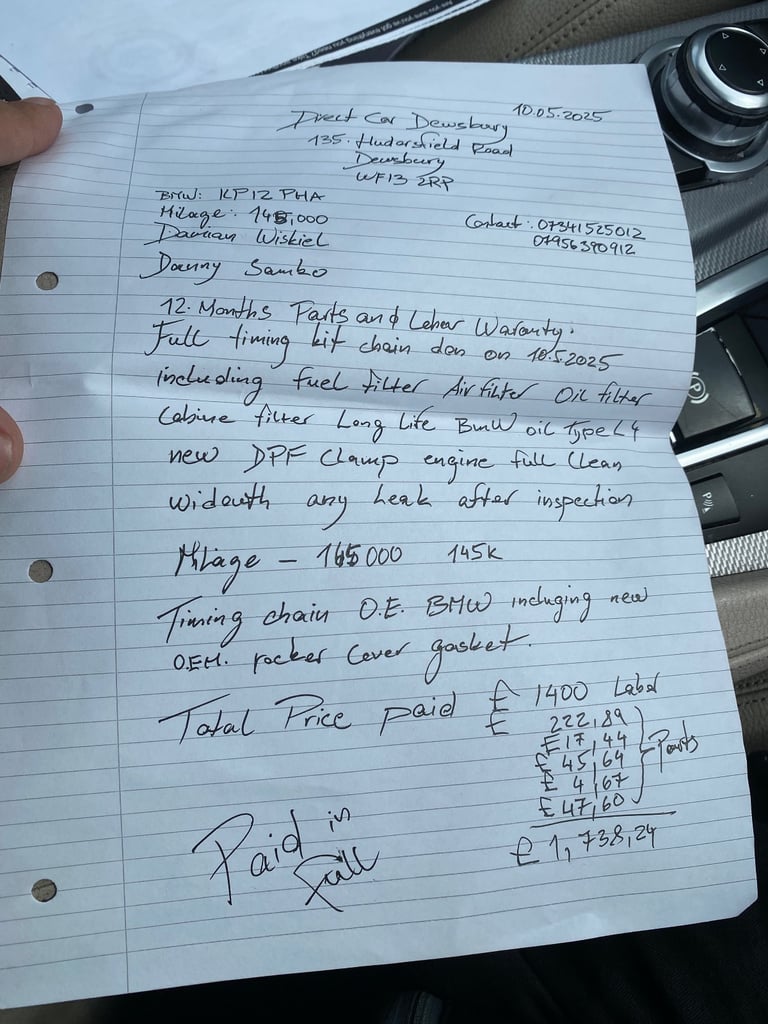 10.05.2025
Direct Car Dewsbury
135. Hudersfield Road
Dewsbury
WF13 2RP
BMW: KP12 PHA
Milage: 145,000
Contact: 07341525012
07956390912
Damian Wiskiel
Danny Sambo
12. Months Parts and Leber Waranty.
Full timing kit chain don on 10.5.2025
including fuel filter Air filter Oil filter
Cabine filter Long Life BMW oil Type L4
new DPF Clamp engine full Clean
widouth any Leak after inspection
Milage - 165000 145K
Timing chain O.E. BMW incluging new
O.E.M. rocker Cover gasket.
Total Price paid £ 1400 Label
£ 222,89
£17,44
£ 45,64 Parts
£ 4,67
£47,60
£ 1,738,24
Paid in
Full